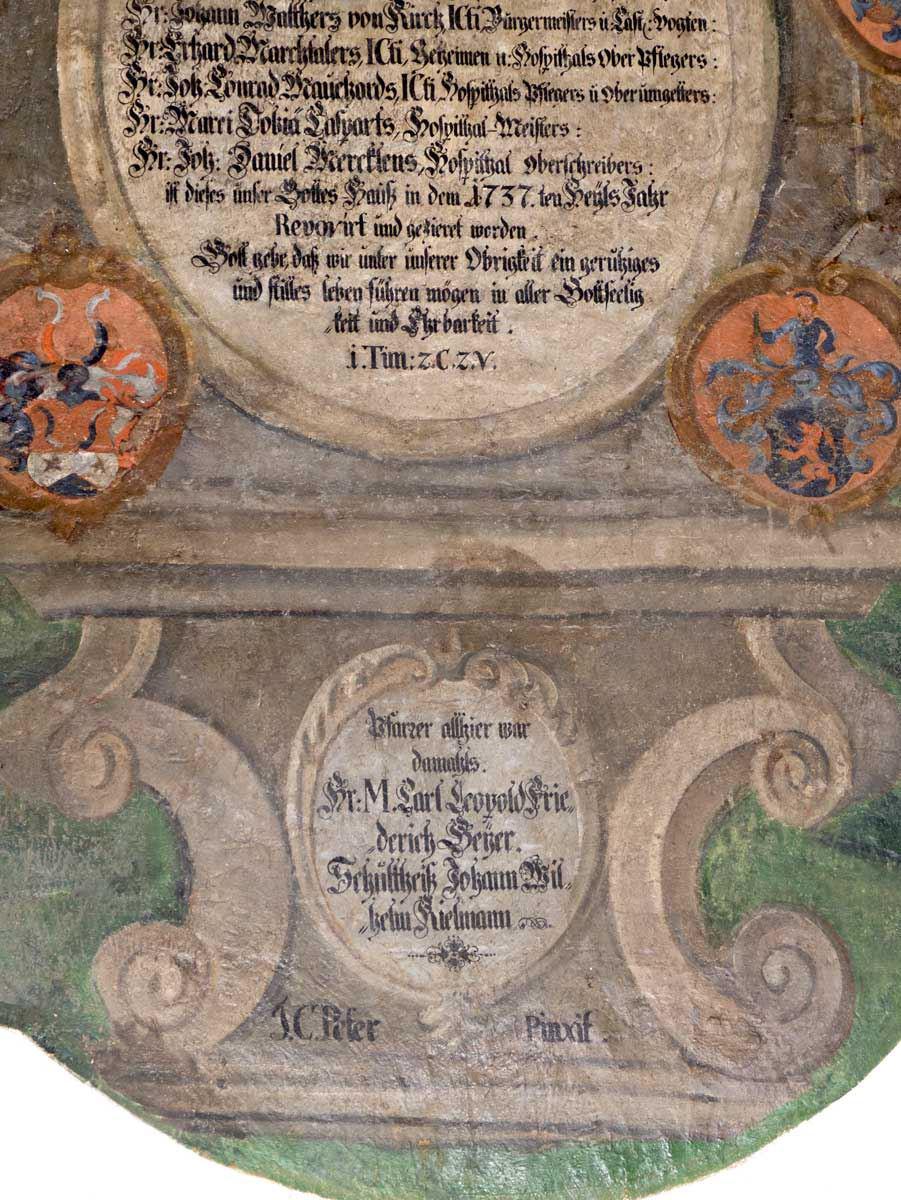 Hr: Johann Walthers von Kirch ICti Bürgermeisters ü Cast: Vogten:
Hr: Erhard Marchtalers, ICti, Geheimen u: Hospithals Ober Pflegers:
Hr: Joh: Conrad Mauchords, ICti Hospithals Pflegers ü Oberümgelters:
Hr: Marci Tobiä Casparts, Hospithal-Meisters:
Hr: Joh: Daniel Mercklens, Hospithal Oberschreibers:
ist dieses ünser Gottes Hauß in dem 1737.ten Heyls Jahr
Renovirt und gezieret worden.
Gott gebe, daß wir ünter ünserer Obrigkeit ein geruhiges
und stilles leben führen mögen in aller Gottseelig
=keit und Ehrbarkeit.
i.Tim: 2.C.2.V.
Pfarrer allhier war
damahls.
Hr: M. Carl Leopold Frie=
=derich Geyer.
Schültheiß Johann Wil=
=helm Kielmann
J.C. Peter Pinxit.